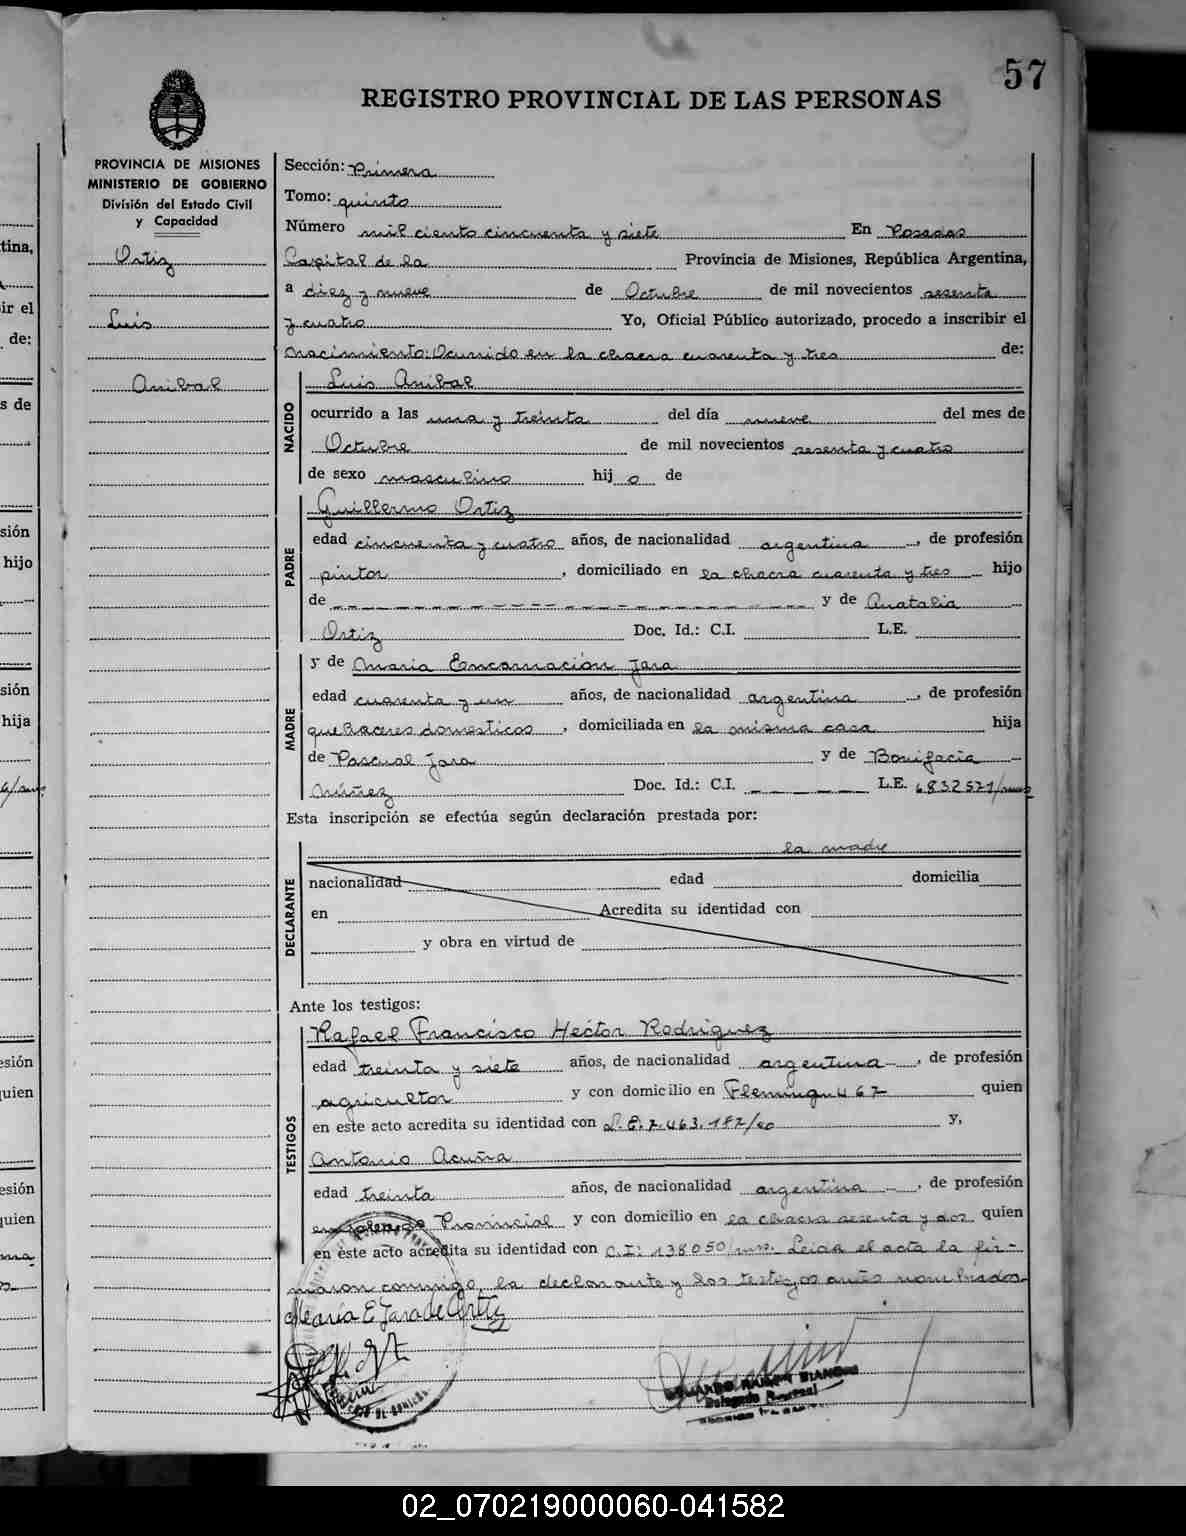 57
REGISTRO PROVINCIAL DE LAS PERSONAS
PROVINCIA DE MISIONES
MINISTERIO DE GOBIERNO
División del Estado Civil
y Capacidad
Ortiz
Luis
Anibal
Sección: Primera
Tomo: quinto
Número mil ciento cincuenta y siete En Posadas
Capital de la Provincia de Misiones, República Argentina,
a diez y nueve de Octubre de mil novecientos sesenta
y cuatro Yo, Oficial Público autorizado, procedo a inscribir el
nacimiento: Ocurrido en la chacra cuarenta y tres de:
NACIDO
Luis Anibal
ocurrido a las una y treinta del día nueve del mes de
Octubre de mil novecientos sesenta y cuatro
de sexo masculino hij o de
PADRE
Guillermo Ortiz
edad cincuenta y cuatro años, de nacionalidad argentina, de profesión
pintor, domiciliado en la chacra cuarenta y tres hijo
de y de Anatalia
Ortiz Doc. Id.: C.I. L.E.
MADRE
y de Maria Encarnación Jara
edad cuarenta y un años, de nacionalidad argentina, de profesión
quehaceres domesticos, domiciliada en la misma casa hija
de Pascual Jara y de Bonifacia
Núñez Doc. Id.: C.I. L.E. 6832571/
Esta inscripción se efectúa según declaración prestada por:
la madre
DECLARANTE
nacionalidad edad domicilia
en Acredita su identidad con
y obra en virtud de
Ante los testigos:
TESTIGOS
Rafael Francisco Hector Rodriguez
edad treinta y siete años, de nacionalidad argentina, de profesión
agricultor y con domicilio en Fleming 467 quien
en este acto acredita su identidad con L.E. 7.463.187/ y,
Antonio Acuña
edad treinta años, de nacionalidad argentina, de profesión
empleado Provincial y con domicilio en la chacra sesenta y dos quien
en este acto acredita su identidad con C.I: 138050/mnes. Leida el acta la fir-
maron conmigo, la declarante y los testigos antes nombrados
María E Jara de Ortiz
EDUARDO RAMON BIANCHI
Delegado
02_070219000060-041582